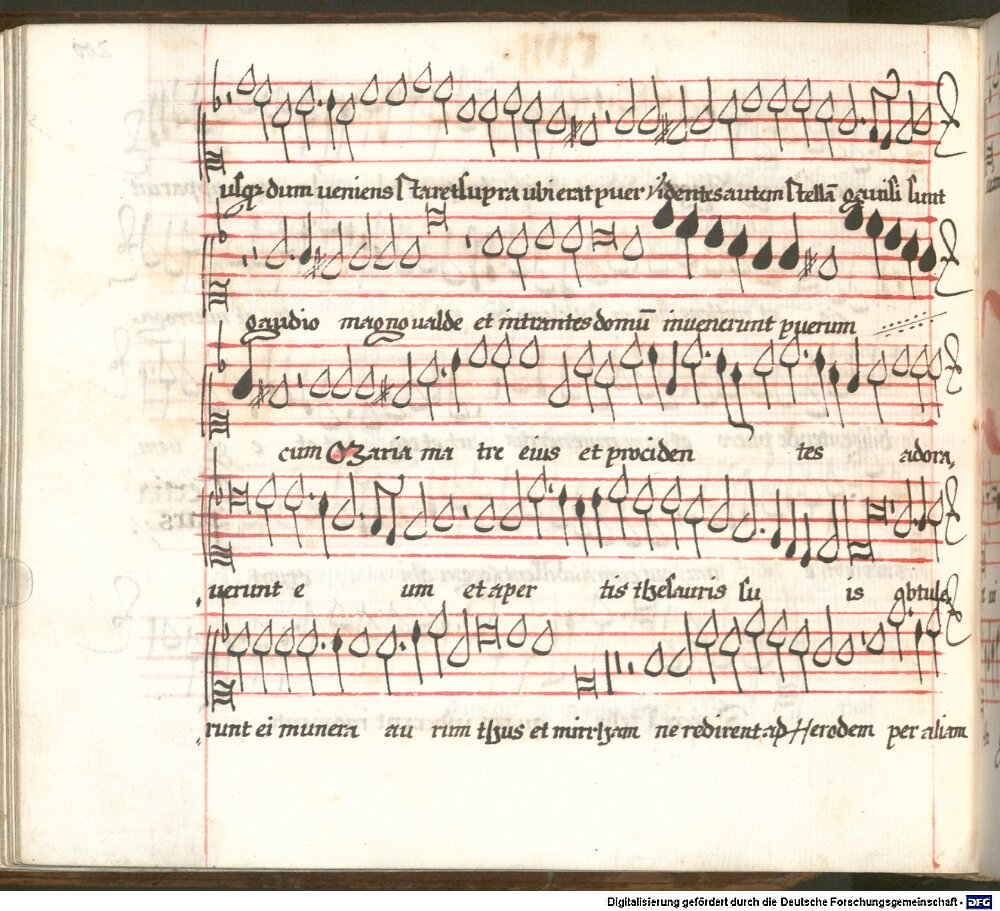 usq; dum veniens staret supra ubi erat puer Videntes autem stellā gavisi sunt
gaudio magno valde et intrantes domū invenerunt puerum
cum Maria ma tre eius et prociden tes adora,
verunt e um et aper tis thesauris su is obtule,
runt ei munera au rum thus et mirrham ne redirent ad Herodem per aliam
Digitalisierung gefördert durch die Deutsche Forschungsgemeinschaft - DFG